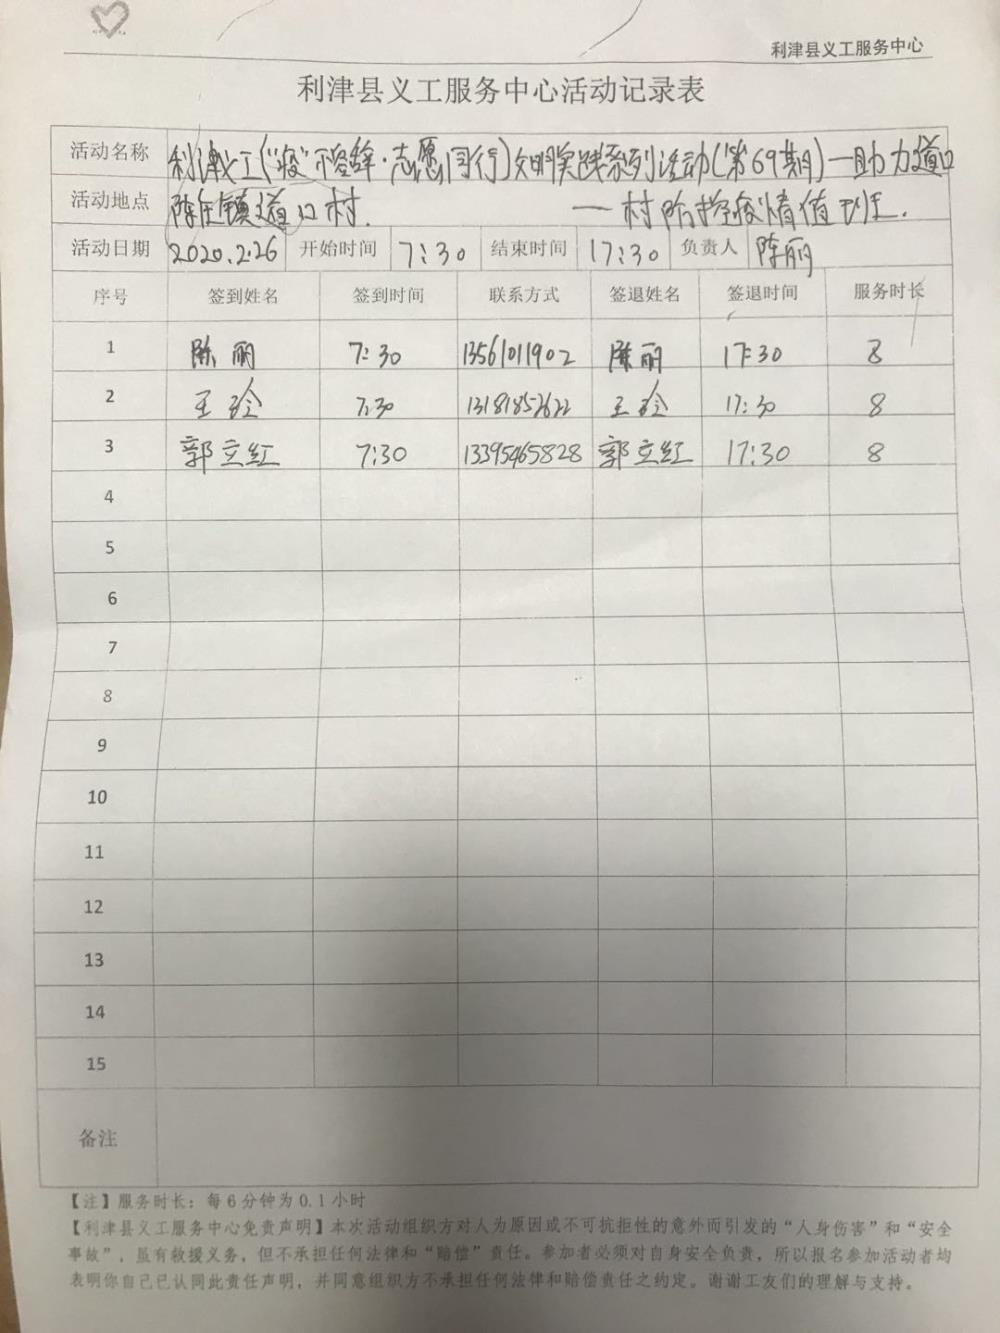 利津县义工服务中心
利津县义工服务中心活动记录表
活动名称 利津义工("疫"不容辞·志愿同行)文明实践系列活动(第69期)—助力道口
活动地点 陈庄镇道口村. —村防控疫情值班.
活动日期 2020.2.26 开始时间 7:30 结束时间 17:30 负责人 陈丽
序号 签到姓名 签到时间 联系方式 签退姓名 签退时间 服务时长
1 陈丽 7:30 13561011902 陈丽 17:30 8
2 王玲 7:30 13181852622 王玲 17:30 8
3 郭立红 7:30 13395465828 郭立红 17:30 8
4
5
6
7
8
9
10
11
12
13
14
15
备注
【注】服务时长：每6分钟为0.1小时
【利津县义工服务中心免责声明】本次活动组织方对人为原因或不可抗拒性的意外而引发的“人身伤害”和“安全
事故”，虽有救援义务，但不承担任何法律和“赔偿”责任。参加者必须对自身安全负责，所以报名参加活动者均
表明你自己已认同此责任声明，并同意组织方不承担任何法律和赔偿责任之约定。谢谢工友们的理解与支持。